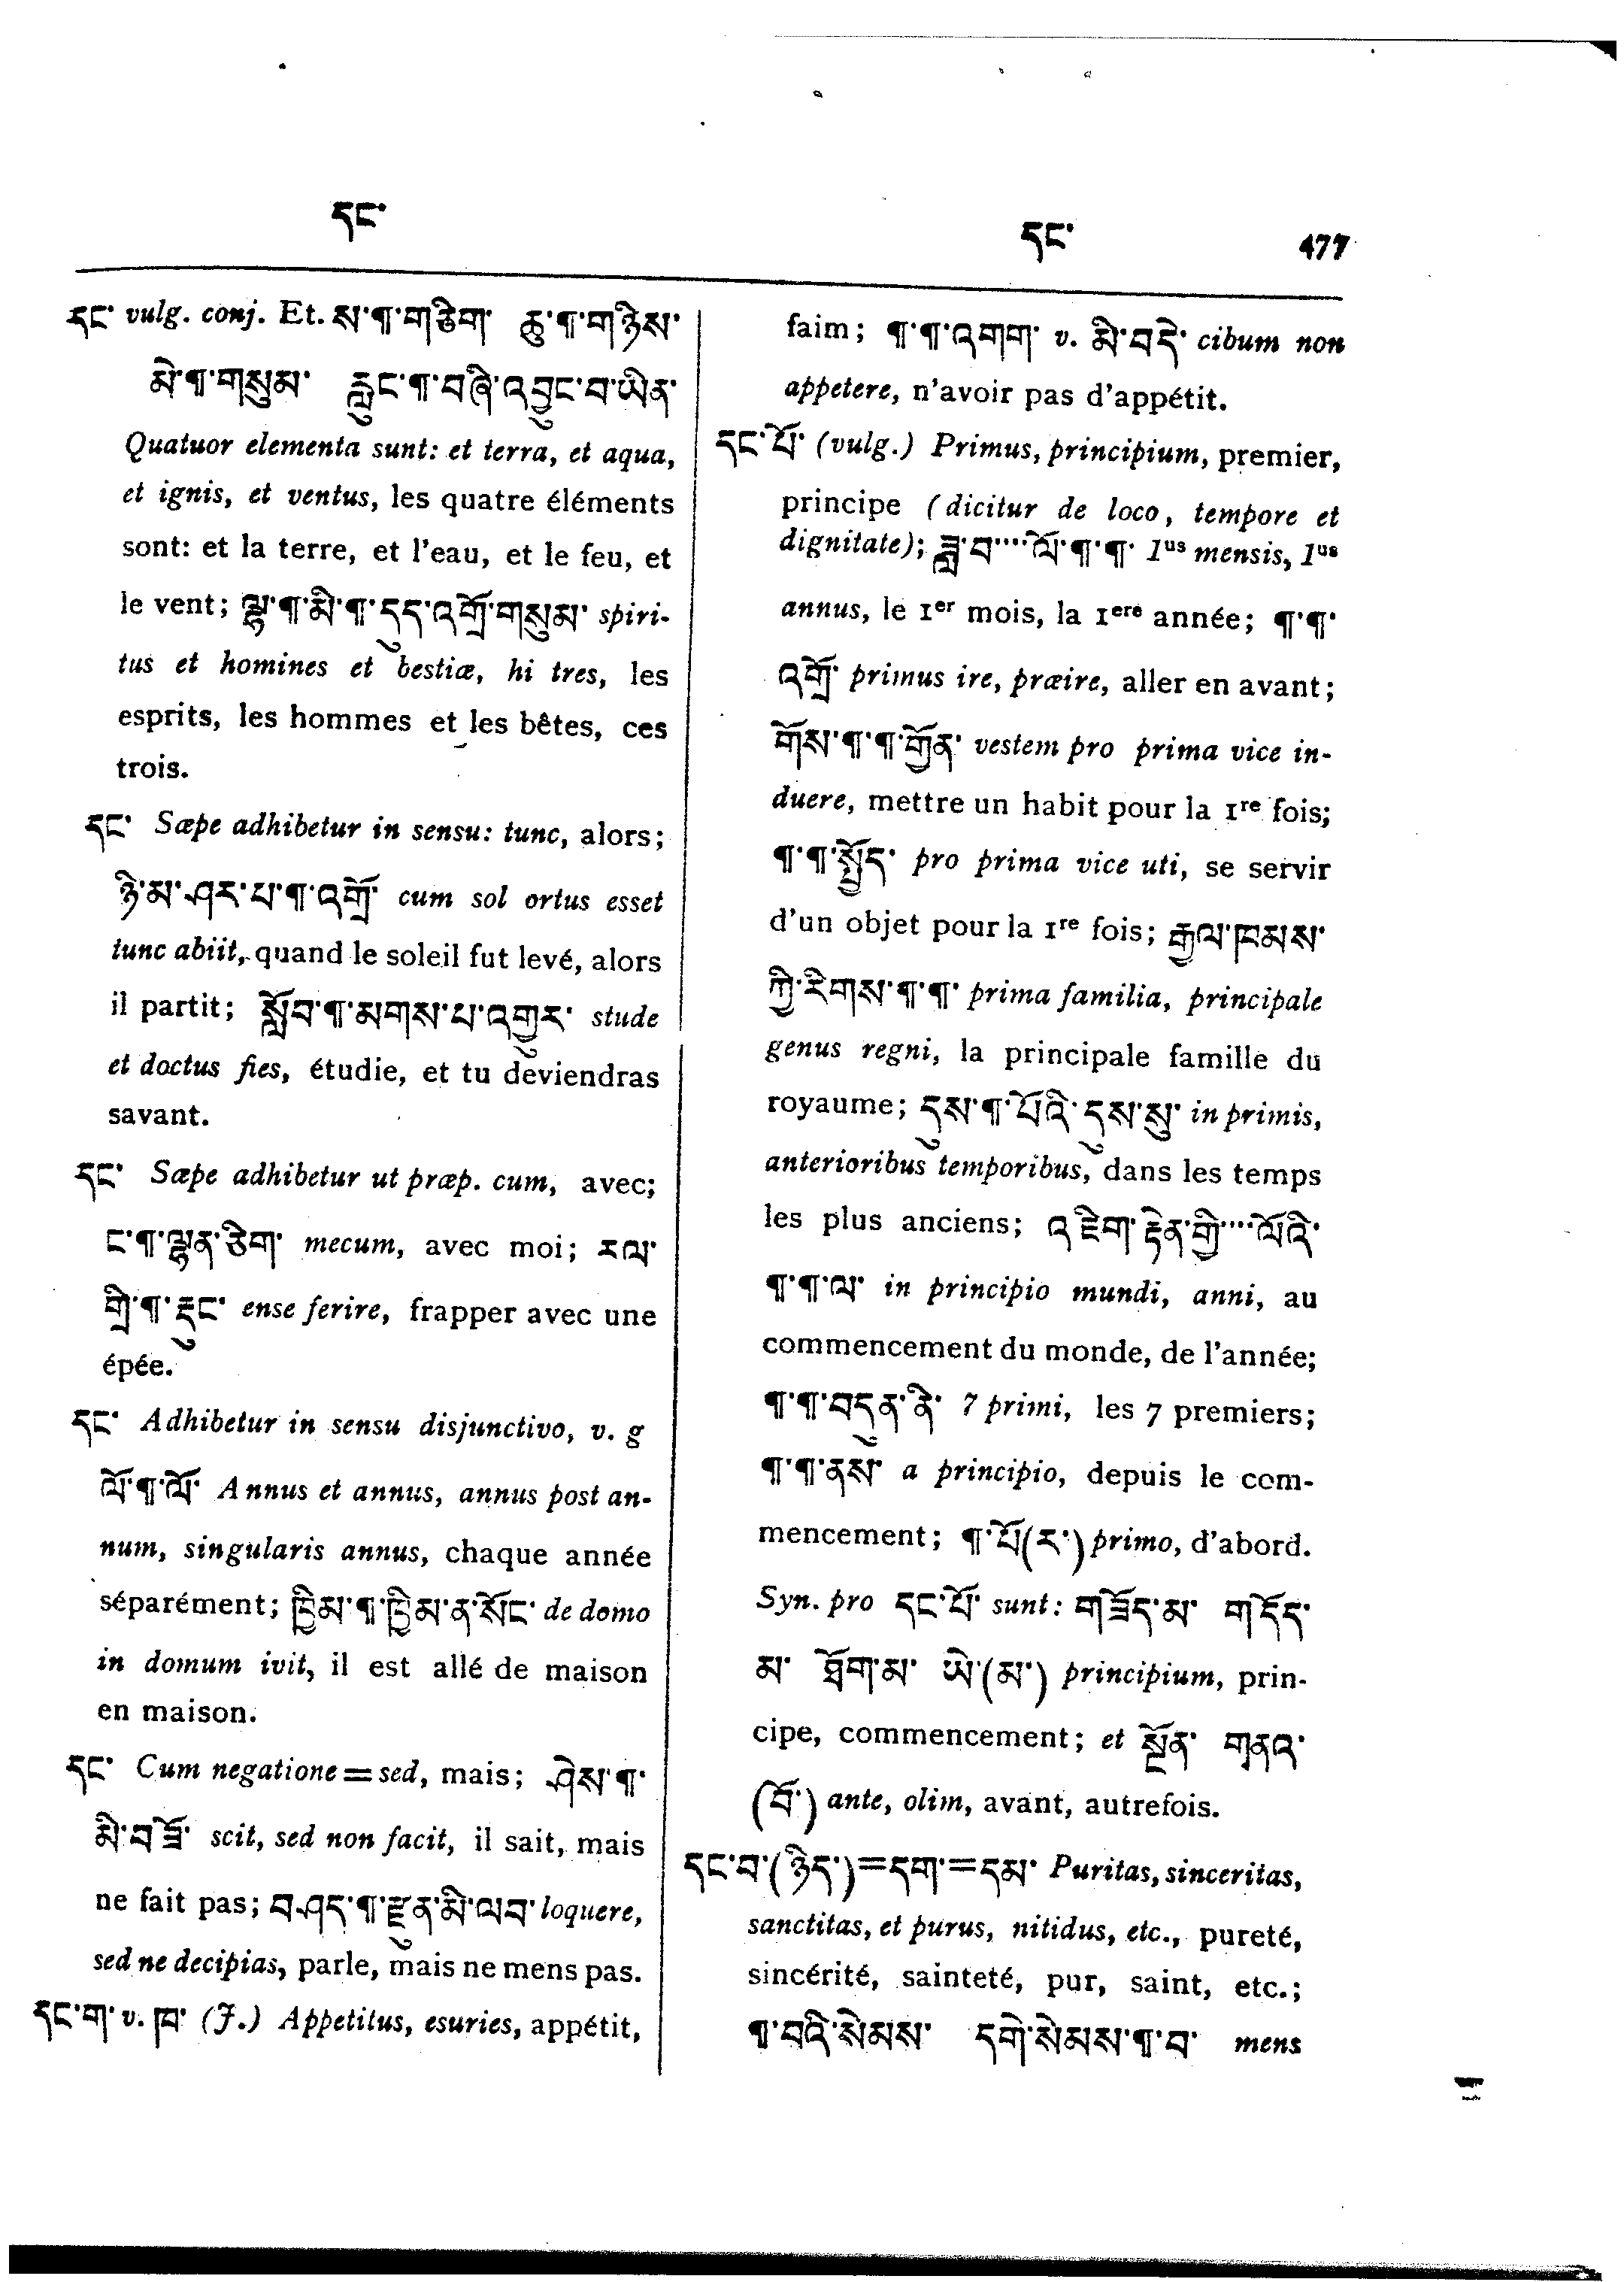 དང་
དང་ 477
དང་ vulg. conj. Et. ས་¶་གཅིག་ ཆུ་¶་གཉིས་
མེ་¶་གསུམ་ རླུང་¶་བཞི་འབྱུང་བ་ཡིན་
Quatuor elementa sunt: et terra, et aqua,
et ignis, et ventus, les quatre éléments
sont: et la terre, et l'eau, et le feu, et
le vent; ལྷ་¶་མི་¶་དུད་འགྲོ་གསུམ་ spiri-
tus et homines et bestiæ, hi tres, les
esprits, les hommes et les bêtes, ces
trois.
དང་ Sæpe adhibetur in sensu: tunc, alors;
ཉི་མ་ཤར་པ་¶་འགྲོ་ cum sol ortus esset
tunc abiit, quand le soleil fut levé, alors
il partit; སློབ་¶་མགས་པ་འགྱུར་ stude
et doctus fies, étudie, et tu deviendras
savant.
དང་ Sæpe adhibetur ut præp. cum, avec;
ང་¶་ལྷན་ཅིག་ mecum, avec moi; རལ་
གྲི་¶་རྡུང་ ense ferire, frapper avec une
épée.
དང་ Adhibetur in sensu disjunctivo, v. g
ལོ་¶་ལོ་ Annus et annus, annus post an-
num, singularis annus, chaque année
séparément; ཁྱིམ་¶་ཁྱིམ་ན་སོང་ de domo
in domum ivit, il est allé de maison
en maison.
དང་ Cum negatione = sed, mais; ཤེས་¶་
མི་བཟོ་ scit, sed non facit, il sait, mais
ne fait pas; བཤད་¶་རྫུན་མི་ལབ་ loquere,
sed ne decipias, parle, mais ne mens pas.
དང་ག་ v. ཁ་ (J.) Appetitus, esuries, appétit,
faim; ¶་¶་འགག་ v. མི་བདེ་ cibum non
appetere, n'avoir pas d'appétit.
དང་པོ་ (vulg.) Primus, principium, premier,
principe (dicitur de loco, tempore et
dignitate); ཟླ་བ་···ལོ་¶་¶་ 1us mensis, 1us
annus, le 1er mois, la 1ere année; ¶་¶་
འགྲོ་ primus ire, præire, aller en avant;
གོས་¶་¶་གྱོན་ vestem pro prima vice in-
duere, mettre un habit pour la 1re fois;
¶་¶་སྤྱོད་ pro prima vice uti, se servir
d'un objet pour la 1re fois; རྒྱལ་ཁམས་
ཀྱི་རིགས་¶་¶་ prima familia, principale
genus regni, la principale famille du
royaume; དུས་¶་པོའི་དུས་སུ་ in primis,
anterioribus temporibus, dans les temps
les plus anciens; འཇིག་རྟེན་གྱི་···ལོའི་
¶་¶་ལ་ in principio mundi, anni, au
commencement du monde, de l'année;
¶་¶་བདུན་ནི་ 7 primi, les 7 premiers;
¶་¶་ནས་ a principio, depuis le com-
mencement; ¶་པོ(ར་) primo, d'abord.
Syn. pro དང་པོ་ sunt: གཟོད་མ་ གདོད་
མ་ ཐོག་མ་ ཡེ་(མ་) principium, prin-
cipe, commencement; et སྔོན་ གནའ་
(བོ་) ante, olim, avant, autrefois.
དང་བ་(ཉིད་)=དག་=དམ་ Puritas, sinceritas,
sanctitas, et purus, nitidus, etc., pureté,
sincérité, sainteté, pur, saint, etc.;
¶་བའི་སེམས་ དགེ་སེམས་¶་བ་ mens